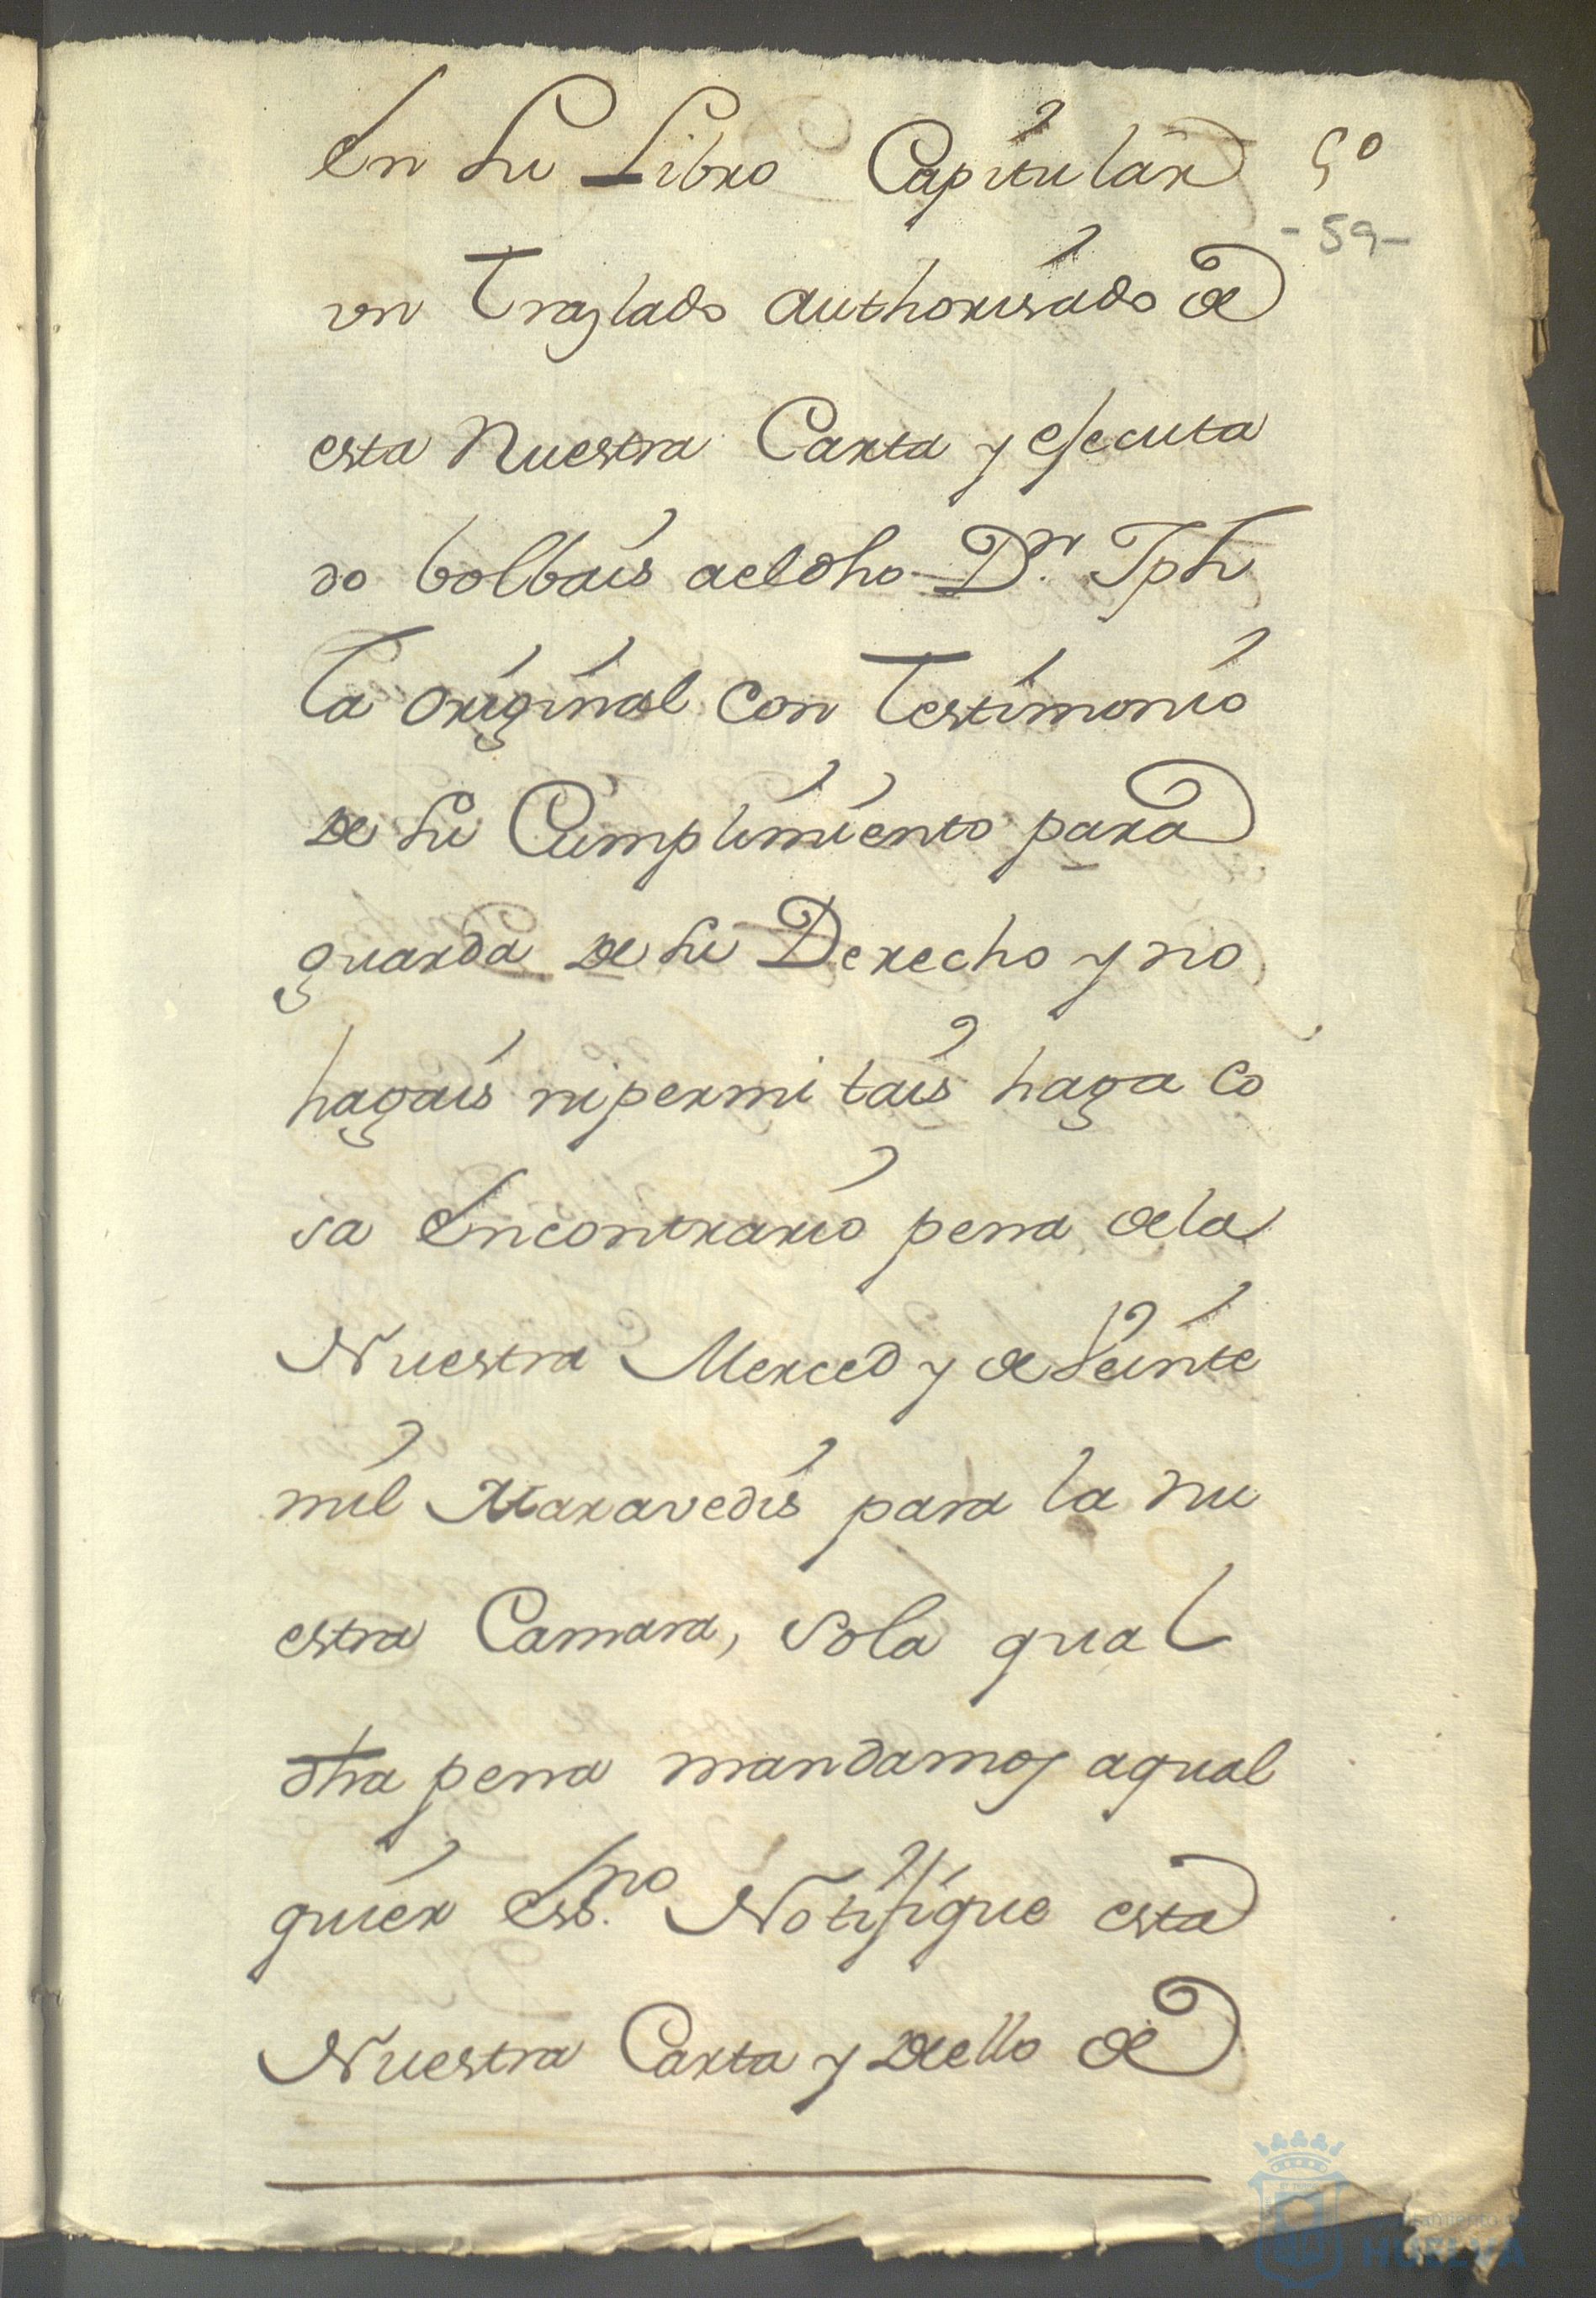 En su Libro Capitular
5º
-59-
un Traslado authorisado de
esta Nuestra Carta y ejecuta
do bolbais ael dho Dn. Jph
la original con Testimonio
de su Cumplimiento para
guarda de su Derecho y no
hagais ni permitais haga co
sa Encontrario pena de la
Nuestra Merced y de Veinte
mil Maravedis para la nu
estra Camara, so la qual
dha pena mandamos a qual
quier essno. Notifique esta
Nuestra Carta y de ello de
Ayuntamiento de
HUELVA